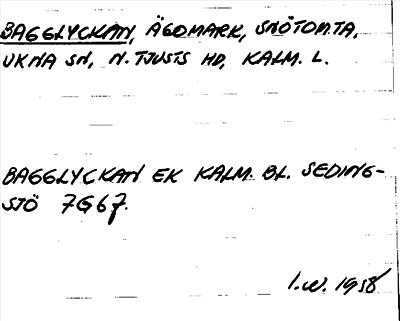 BAGGLYCKAN, ÄGOMARK, SNÖTOMTA,
UKNA SN, N. TJUSTS HD, KALM. L.
BAGGLYCKAN EK KALM. BL. SEDING-
SJÖ 7G6f.
I.W. 1958